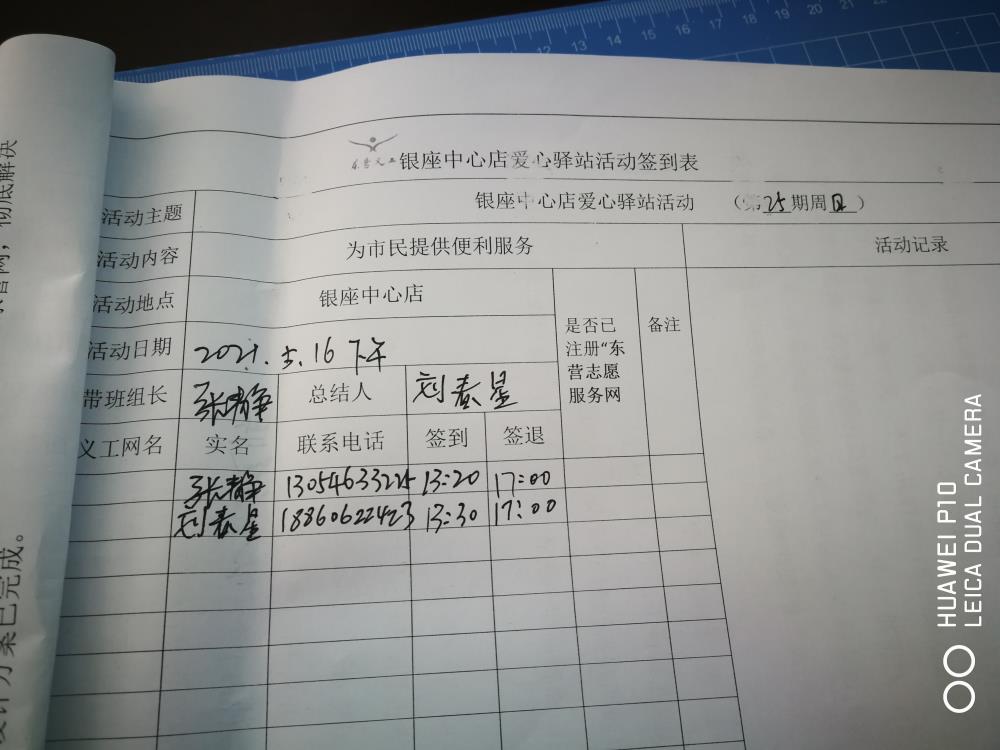 东营义工 银座中心店爱心驿站活动签到表
活动主题 银座中心店爱心驿站活动 (第25期周日)
活动内容 为市民提供便利服务 活动记录
活动地点 银座中心店 是否已注册“东营志愿服务网 备注
活动日期 2021.5.16 下午
带班组长 张静 总结人 刘春星
义工网名 实名 联系电话 签到 签退
张静 13054633225 13:20 17:00
刘春星 18860622423 13:30 17:00
彻底解决
设计方案已完成。
HUAWEI P10
LEICA DUAL CAMERA